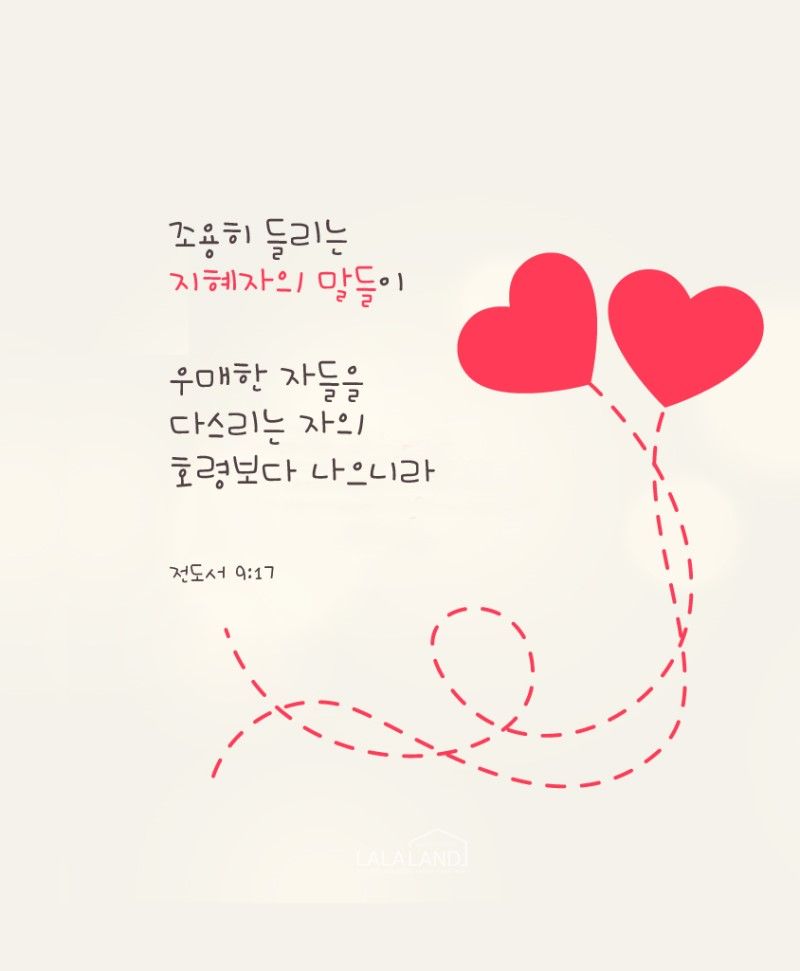 조용히 들리는
지혜자의 말들이
우매한 자들을
다스리는 자의
호령보다 나으니라
전도서 9:17
LALALAND